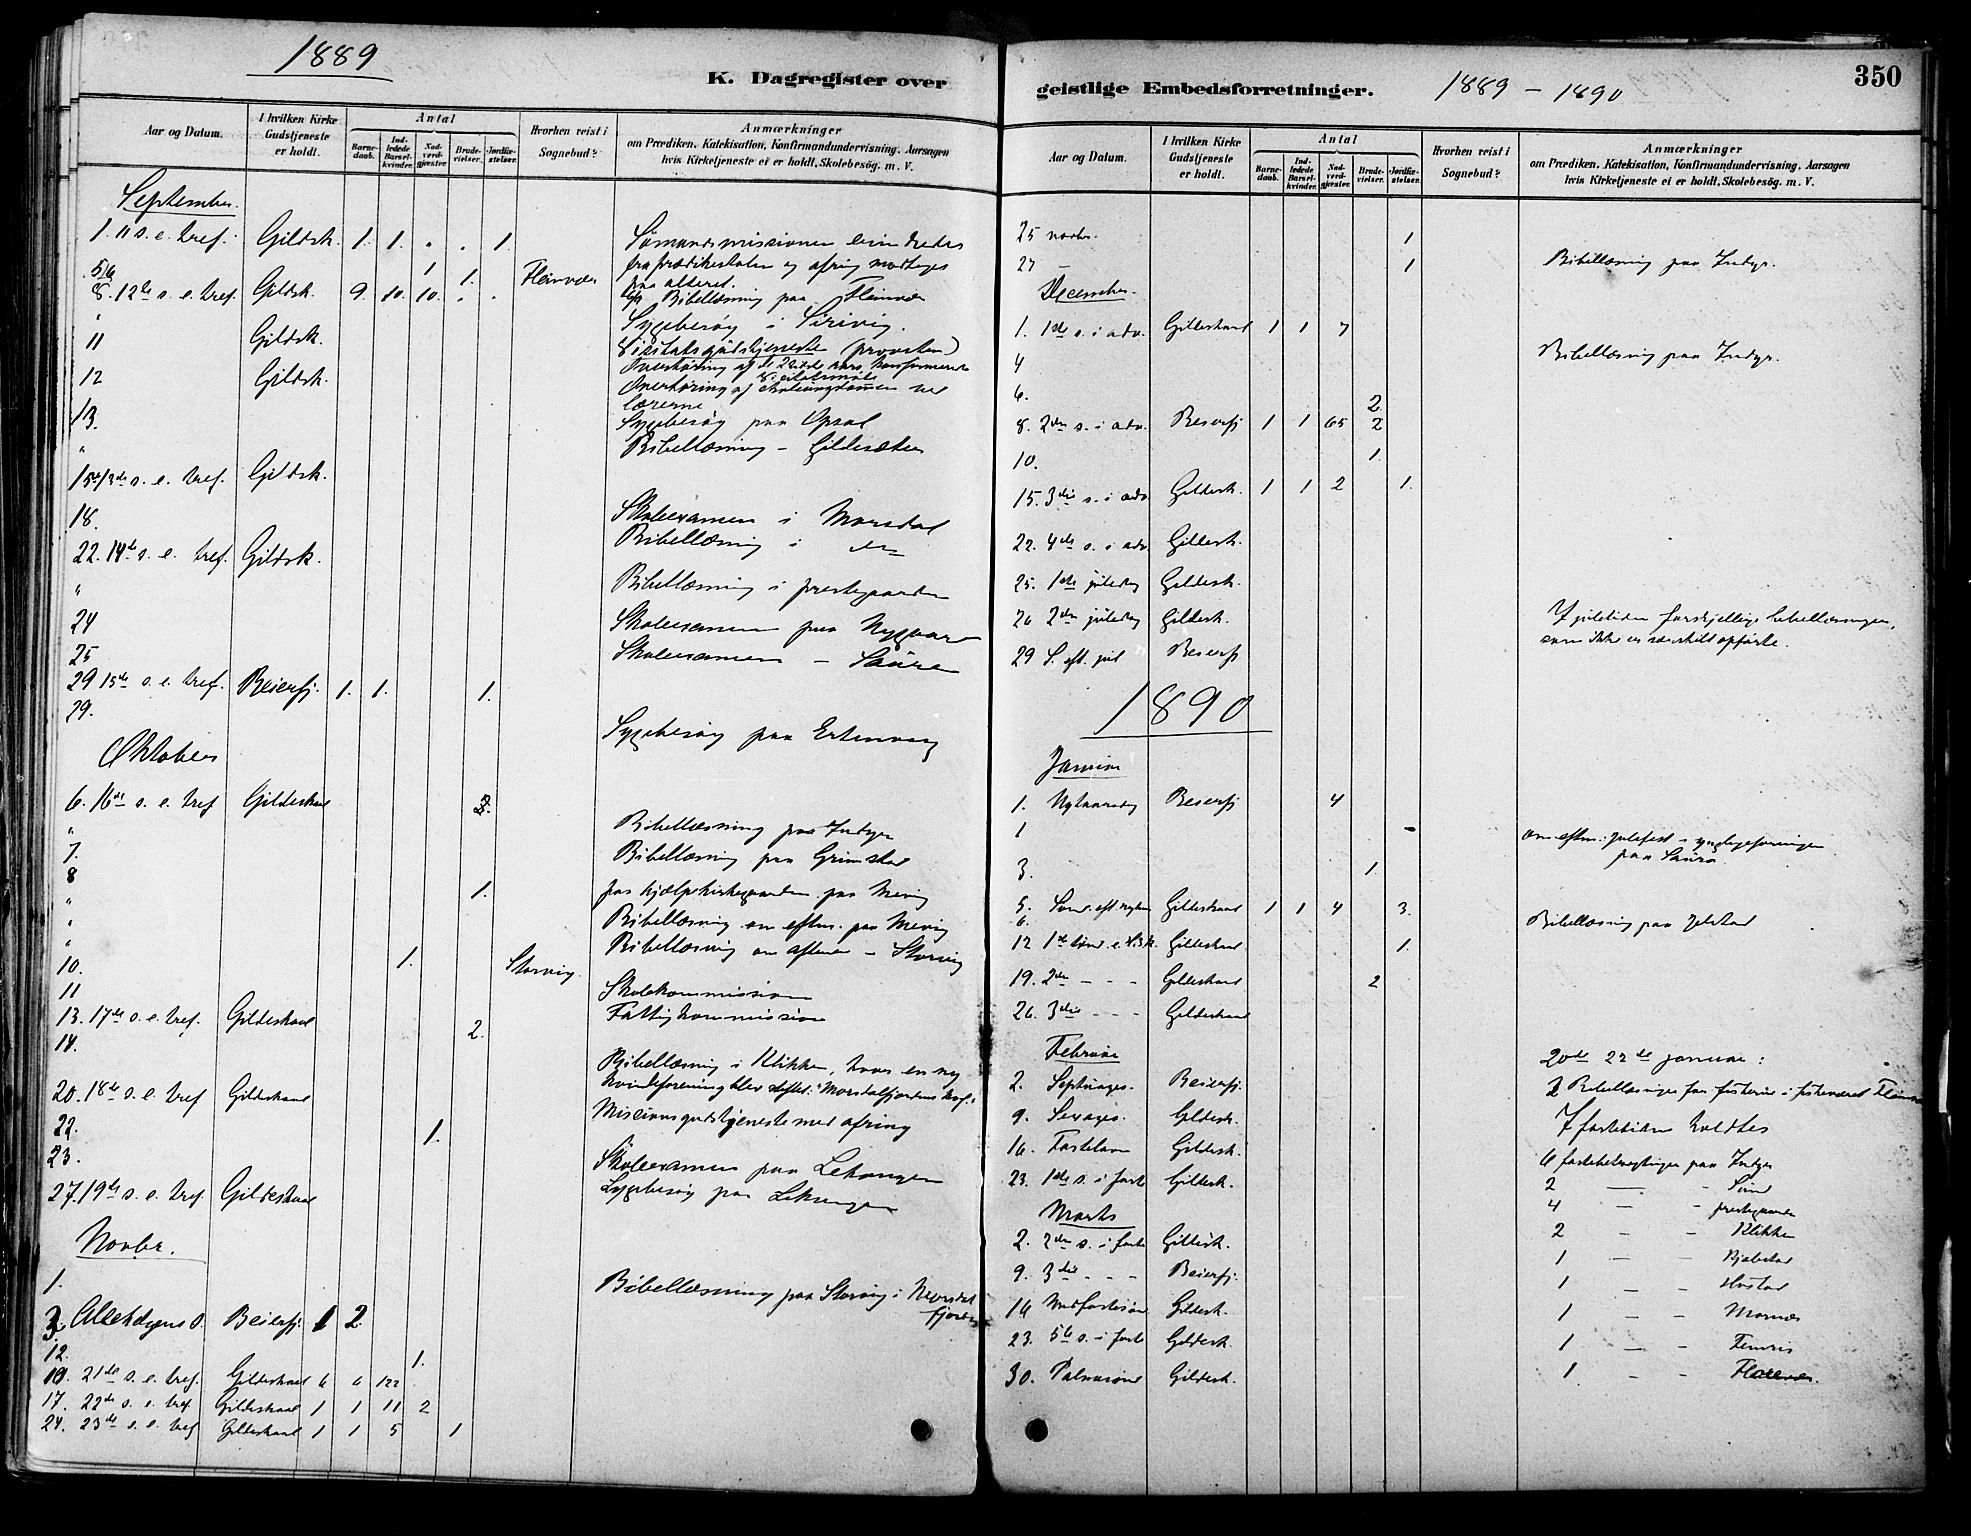 1889
K. Dagregister over
Aar og Datum.
I hvilken Kirke Gudstjeneste er holdt.
Antal
Barnedaab.
Indledede Barselkvinder.
Nadverdgjæster.
Brudevielser.
Jordfæstelser.
Hvorhen reist i Sognebud?
Anmærkninger
om Prædiken, Katekisation, Konfirmandundervisning, Aarsagen
hvis Kirketjeneste ei er holdt, Skolebesøg. m. V.
September.
1. 11 s. e. tref. Gildsk. 1. 1. " " 1. Sømandsmissionen
fra prædikestolen og ofring modtoges
5/6 1 1. Fleinvær paa alteret.
8. 12te s. e. tref. Gildsk. 9. 10. 10. " " Bibellæsning paa Fleinvær
" Sygebesøg i Sørvig.
11 Gildsk. Visitatsgudstjeneste (provsten)
Overhøring af de 2 sidste aars konfirmerede
12 Gildsk. Visitatsmøde
Overhøring af skoleungdommen ved
lærerne
13. Sygebesøg paa Opsal
" Bibellæsning - Gildesæter
15. 13de s. e. tref. Gildsk.
18. Skoleexamen i Morsdal
Bibellæsning i do
22. 14de s. e. tref. Gildsk.
" Bibellæsning i prestegaarden
24 Skoleexamen paa Nygaar
25 Skoleexamen - Saura
29 15de s. e. tref. Beierfj. 1. 1. 1.
29. Sygebesøg paa Ertenvaag
Oktober
6. 16de s. e. tref Gildeskaal 2.
" Bibellæsning paa Indyr
7. Bibellæsning paa Grimstad
8 1. paa hjælpekirkegaarden paa Mevig
" Bibellæsning om efterm. paa Mevig
" Bibellæsning om aftenen - Storvig
10. 1. Storvig.
11 Skolekommission
13. 17de s. e. tref. Gildeskaal Fattigkommission
14. 2.
Bibellæsning i Klikken, hvor en ny
20. 18de s. e. tref Gildeskaal kvindeforening blev stiftet: Morsdalfjordens kvf.
Missionsgudstjeneste med ofring
22. 1.
23. Skoleexamen paa Lekangen
27. 19de s. e. tref. Gildeskaal Sygebesøg paa Lekangen
Novbr.
1. Bibellæsning paa Storvig i Morsdal
fjorden
3. Allehelgens D. Beierfj. 1 2
12. 1.
10. 21de s. e. tref. Gildeskaal 6 6 122
17. 22de s. e. tref. Gildeskaal 1 1 11 2
24. 23de s. e. tref Gildeskaal 1 1 5 1
geistlige Embedsforretninger.
1889 - 1890
350
Aar og Datum.
I hvilken Kirke Gudstjeneste er holdt.
Antal
Barnedaab.
Indledede Barselkvinder.
Nadverdgjæster.
Brudevielser.
Jordfæstelser.
Hvorhen reist i Sognebud?
Anmærkninger
om Prædiken, Katekisation, Konfirmandundervisning, Aarsagen
hvis Kirketjeneste ei er holdt, Skolebesøg. m. V.
25 novbr. 1
27 - 1 Bibellæsning paa Indyr.
December.
1. 1ste s. i adv. Gildeskaal 1 1 7
4 Bibellæsning paa Indyr.
6. 2
8. 2den s. i adv. Beierfj 1 1 65 2
10. 1.
15. 3die s. i adv. Gildesk. 1 1 2 1.
22. 4de s. i adv. Gildesk.
25. 1ste juledag Gildesk.
26 2den juledag Gildesk. I juletiden forskjellige bibellæsninger,
som ikke er særskilt opførte.
29 S. eft. jul Beierfj
1890
Januar
1. Nytaarsdag Beierfj 4
1 om efterm: julefest i ynglingeforeningen
paa Saura
3. 1
5. Sønd. eft. nytaar Gildeskaal 1 1 4 3.
6. Bibellæsning paa Jelstad
12 1ste sønd. e. H. 3 K. Gildeskaal 1.
19. 2den - - - Gildeskaal 2
26. 3die - - - Gildeskaal
Februar 20de 22de januar:
2. Septuages. Beierfj. 2 Bibellæsninger for fiskerne i fiskeværet Fleinvær
9. Sexages. Gildesk. I fastetiden holdtes
16. Fastelavn Gildesk. 6 fastebetragtninger paa Indyr
23. 1ste s. i faste Gildesk. 2 - - Sund
Marts 4 - - prestegaarden
2. 2den s. i faste Gildesk. 2 - - Klikken
9. 3die - - - Beierfj. 1 - - Kjelstad
1 - - Hustad
16 Midfastesønd Gildesk. 1 - - Mornæs
23. 5te s. i faste Gildesk. 1 - - Femris
30. Palmesønd Gildesk. 1 - -